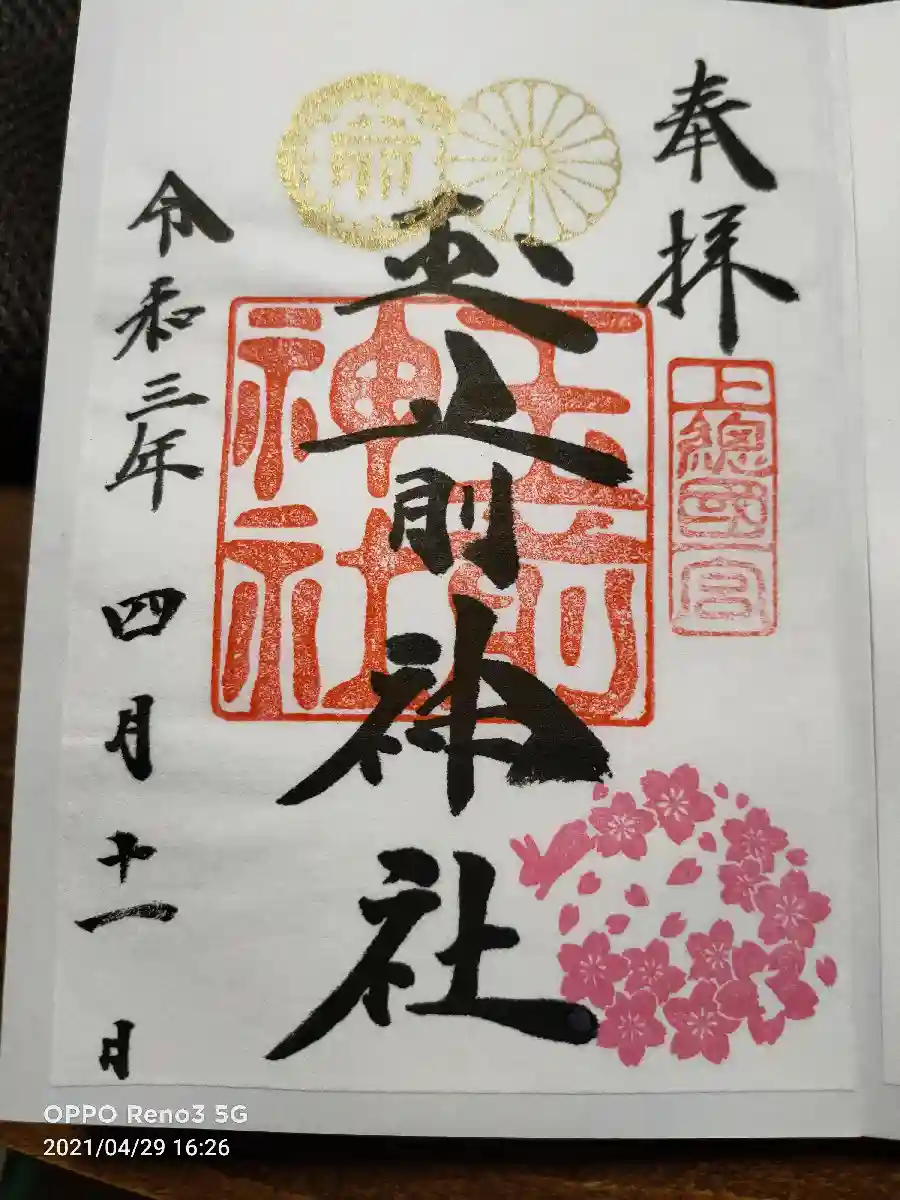 奉拝
上總國一宮
玉前神社
玉前神社
令和三年 四月十一日
OPPO Reno3 5G
2021/04/29 16:26